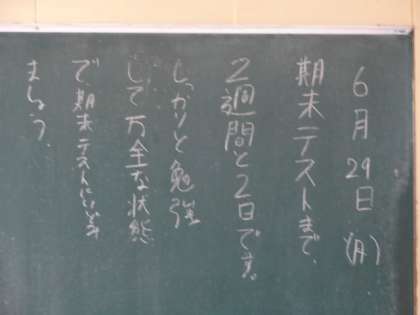 6月29日(月)
期末テストまで、
2週間と2日です。
しっかりと勉強
して万全な状態
で期末テストにいどみ
ましょう。